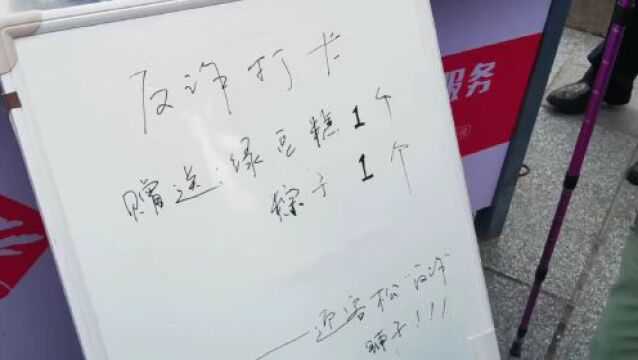 反诈打卡
赠送:绿豆糕1个
粽子1个
——迎客松"反诈"
狮子!!!
服务